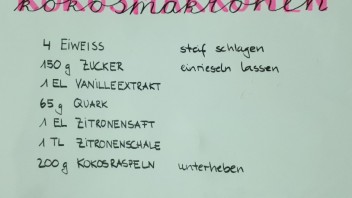 kokosmakronen
4 EIWEISS steif schlagen
150 g ZUCKER einrieseln lassen
1 EL VANILLEEXTRAKT
65 g QUARK
1 EL ZITRONENSAFT
1 TL ZITRONENSCHALE
200 g KOKOSRASPELN unterheben